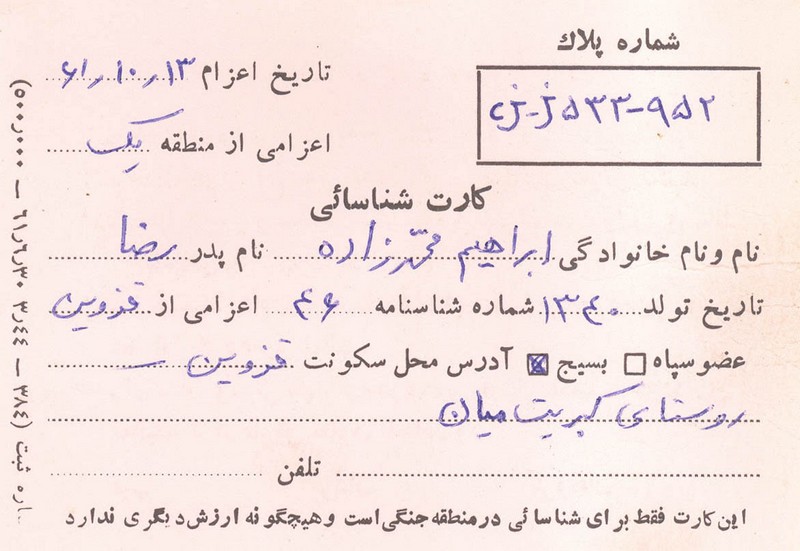 شماره پلاك
تاریخ اعزام ۶۱٫۱۰٫۱۳
اعزامی از منطقه یک
کارت شناسائی
نام ونام خانوادگی ابراهیم محمدزاده نام پدر رضا
تاریخ تولد ۱۳۴۰ شماره شناسنامه ۴۶ اعزامی از قزوین
عضو سپاه بسیج آدرس محل سکونت قزوین –
روستای کبریت میان
تلفن
این کارت فقط برای شناسائی در منطقه جنگی است و هیچگونه ارزش دیگری ندارد